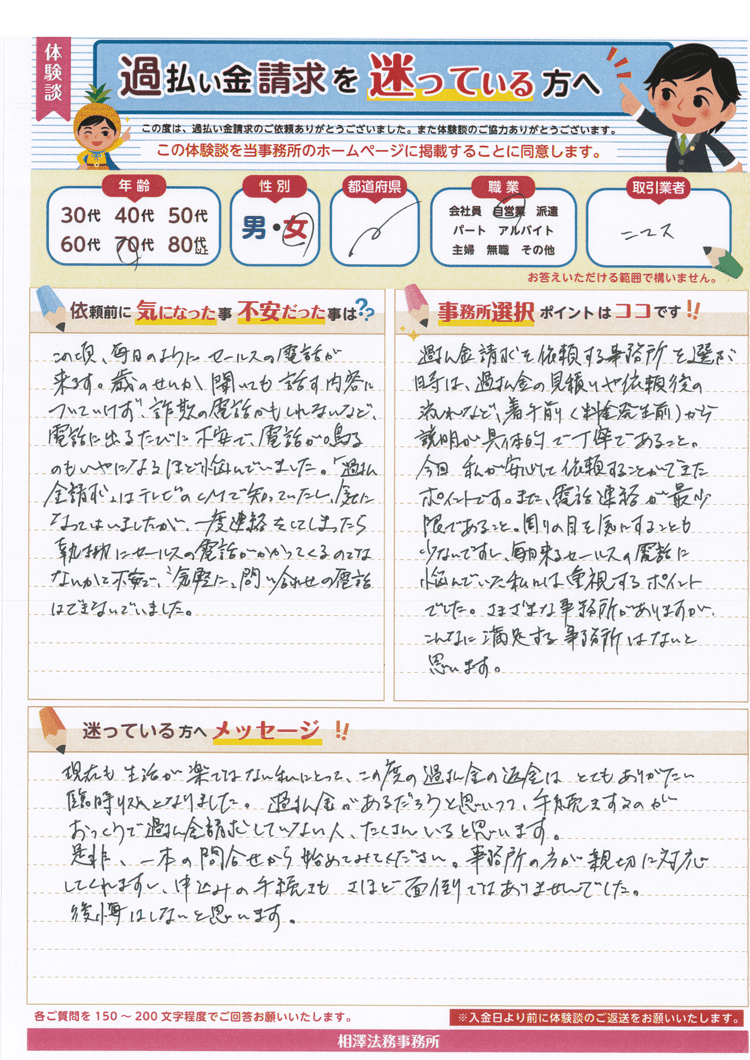 体験談
過払い金請求を迷っている方へ
この度は、過払い金請求のご依頼ありがとうございました。また体験談のご協力ありがとうございます。
この体験談を当事務所のホームページに掲載することに同意します。
年齢
30代 40代 50代
60代 70代 80代以上
性別
男・女
都道府県
職業
会社員 自営業 派遣
パート アルバイト
主婦 無職 その他
取引業者
ニコス
お答えいただける範囲で構いません。
依頼前に気になった事 不安だった事は??
この頃、毎日のようにセールスの電話が
来ます。歳のせいか聞いても話す内容に
ついていけず、詐欺の電話かもしれないなど、
電話に出るたびに不安で、電話が鳴る
のもいやになるほど悩んでいました。「過払
金請求」はテレビのCMで知っていたし、気に
なってはいましたが、一度連絡をしてしまったら
執拗にセールスの電話がかかってくるのでは
ないかと不安で、気軽に、問い合わせの電話
はできないでいました。
事務所選択ポイントはココです!!
過払金請求を依頼する事務所を選ぶ
時は、過払金の見積りや依頼後の
流れなど、着手前(料金発生前)から
説明が具体的で丁寧であること。
今回私が安心して依頼することができた
ポイントです。また、電話連絡が最少
限であること。周りの目を気にすることも
少ないですし、毎日来るセールスの電話に
悩んでいた私には重視するポイント
でした。さまざまな事務所がありますが、
こんなに満足する事務所はないと
思います。
迷っている方へメッセージ!!
現在も生活が楽ではない私にとって、この度の過払金の返金はとてもありがたい
臨時収入となりました。過払金があるだろうと思いつつ、手続きするのが
おっくうで過払金請求していない人、たくさんいると思います。
是非、一本の問合せから始めてみてください。事務所の方が親切に対応
してくれますし、申込みの手続きも さほど面倒ではありませんでした。
後悔はしないと思います。
各ご質問を150～200文字程度でご回答お願いいたします。
※入金日より前に体験談のご返送をお願いいたします。
相澤法務事務所